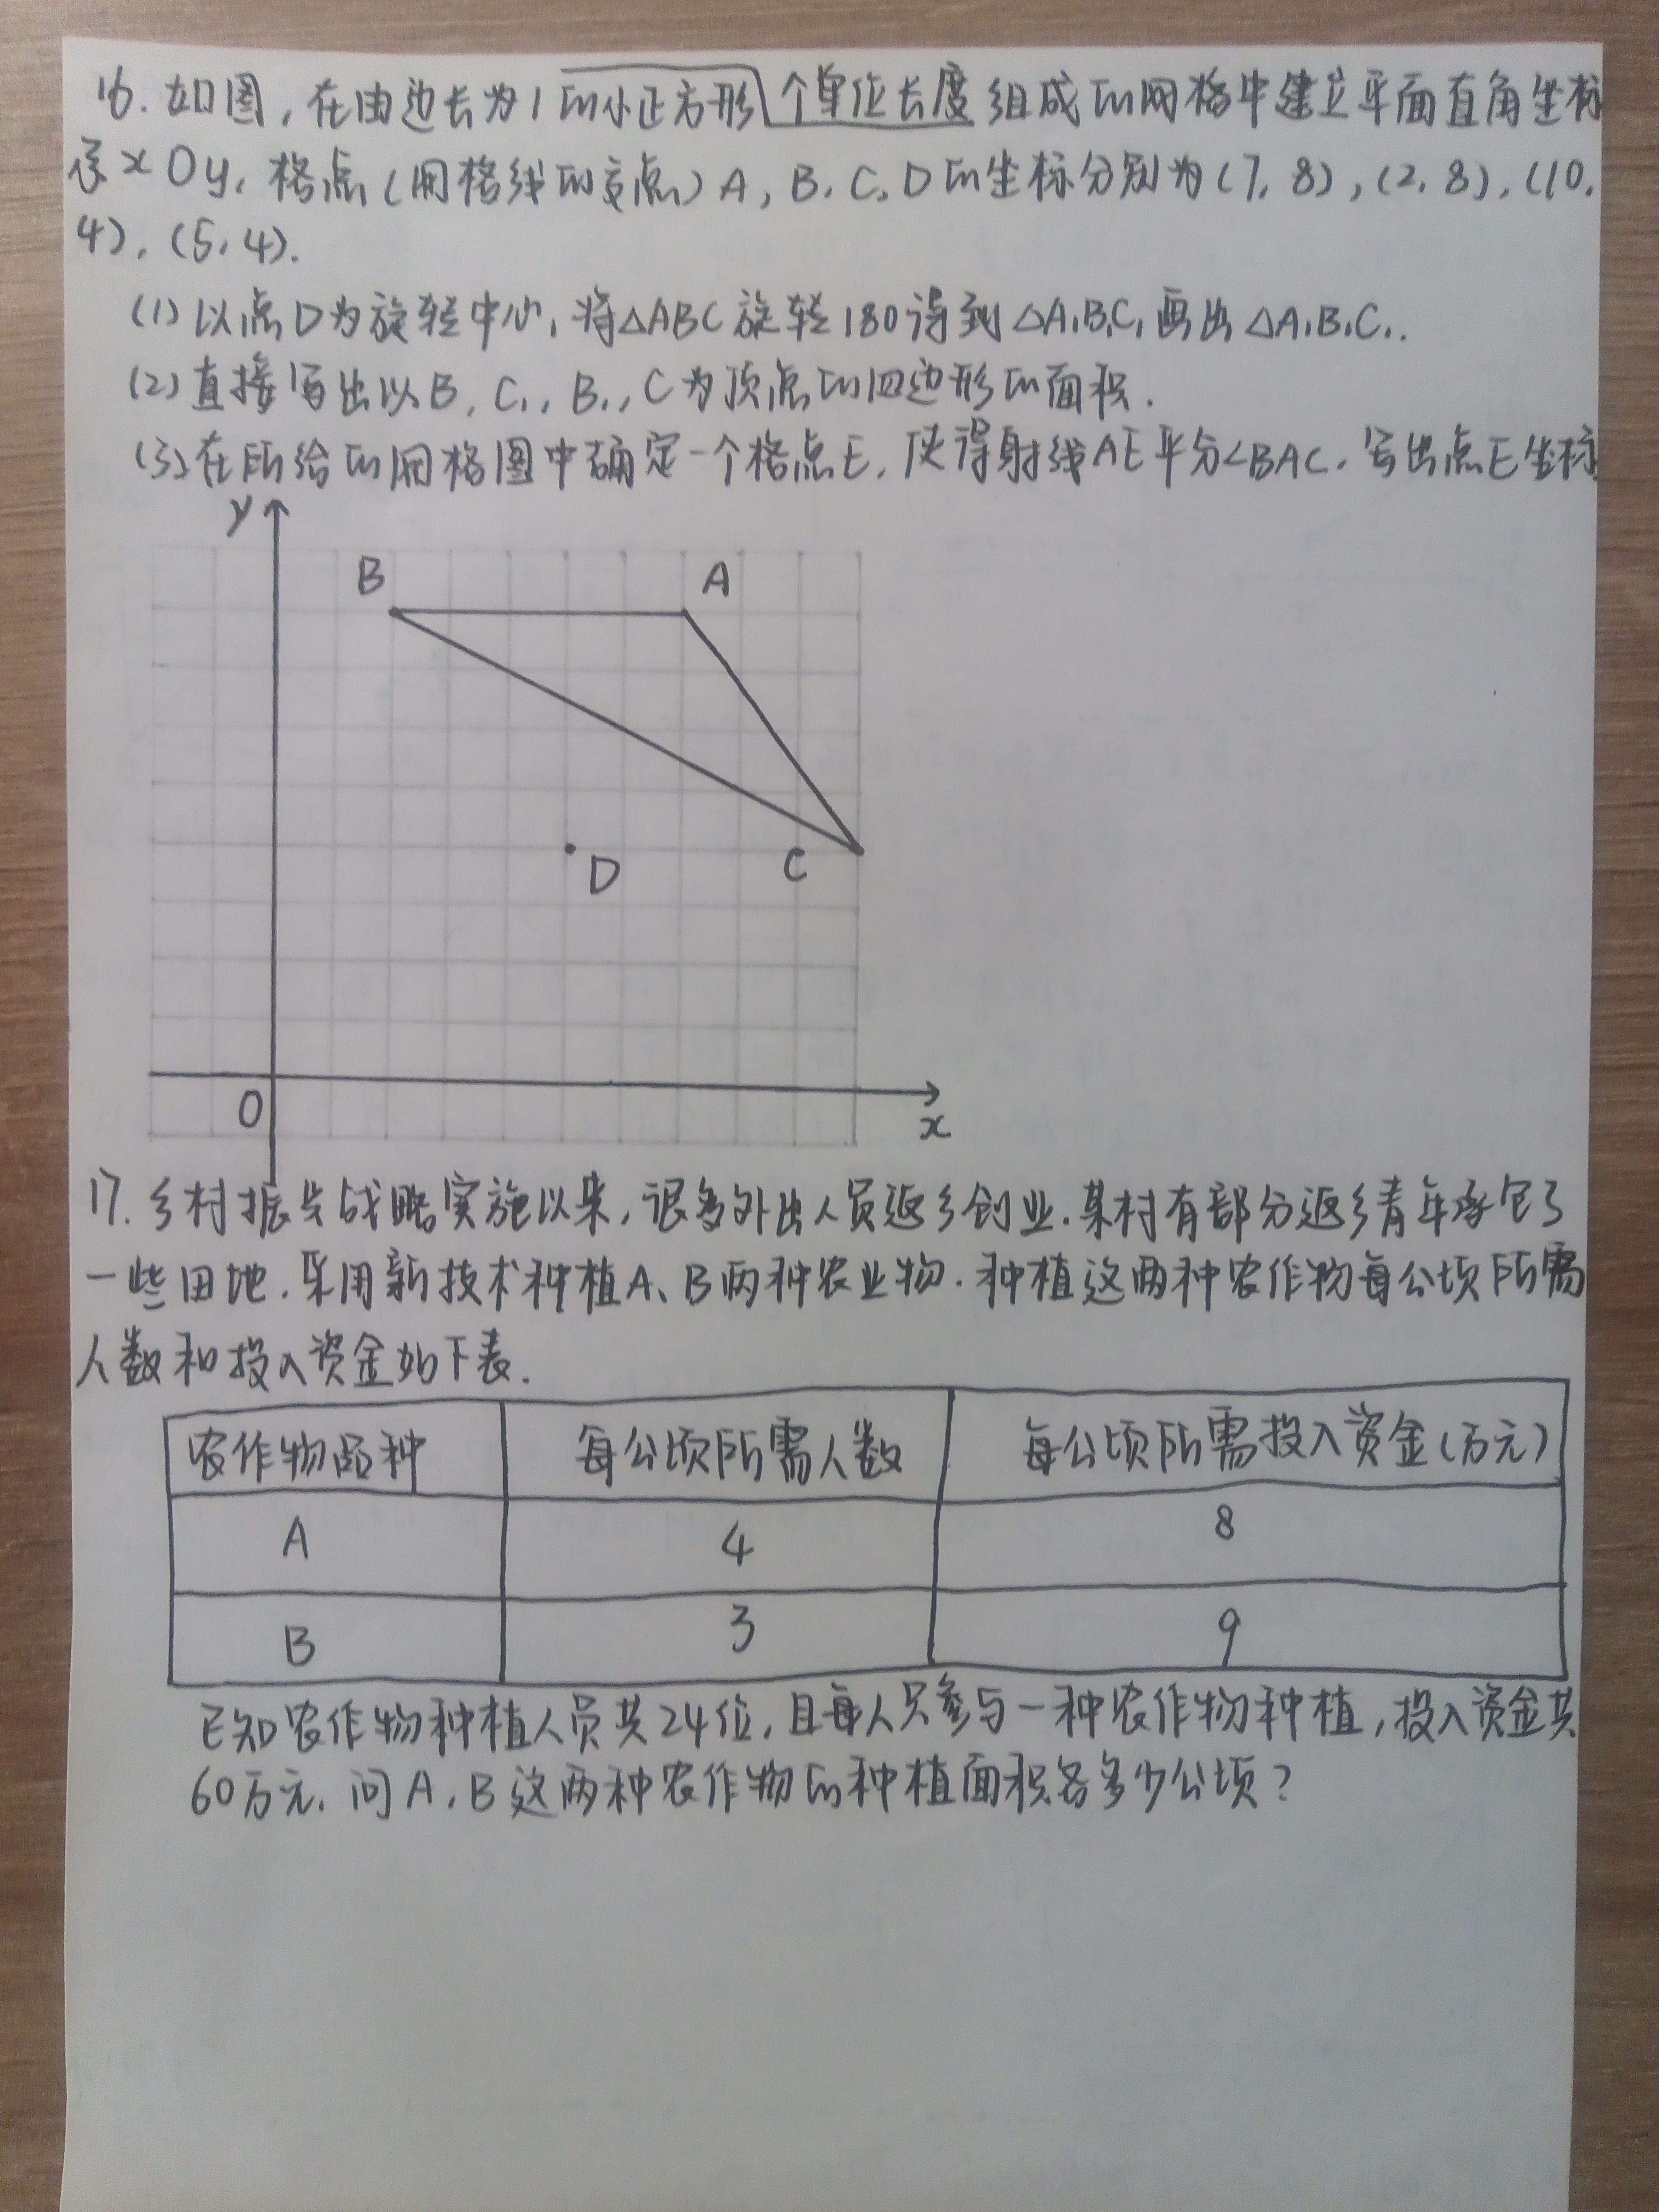 16. 如图，在由边长为1的小正方形个单位长度组成的网格中建立平面直角坐标
系xOy，格点（网格线的交点）A，B，C，D的坐标分别为（7，8），（2，8），（10，
4），（5，4）.
（1）以点D为旋转中心，将△ABC旋转180得到△A₁B₁C₁画出△A₁B₁C₁.
（2）直接写出以B，C₁，B₁，C为顶点的四边形的面积.
（3）在所给的网格图中确定一个格点E，使得射线AE平分∠BAC，写出点E坐标
y
B A
D C
O
x
17. 乡村振兴战略实施以来，很多外出人员返乡创业.某村有部分返乡青年承包了
一些田地.采用新技术种植A、B两种农业物.种植这两种农作物每公顷所需
人数和投入资金如下表.
农作物品种 每公顷所需人数 每公顷所需投入资金（万元）
A 4 8
B 3 9
已知农作物种植人员共24位，且每人只参与一种农作物种植，投入资金共
60万元，问A，B这两种农作物的种植面积各多少公顷？